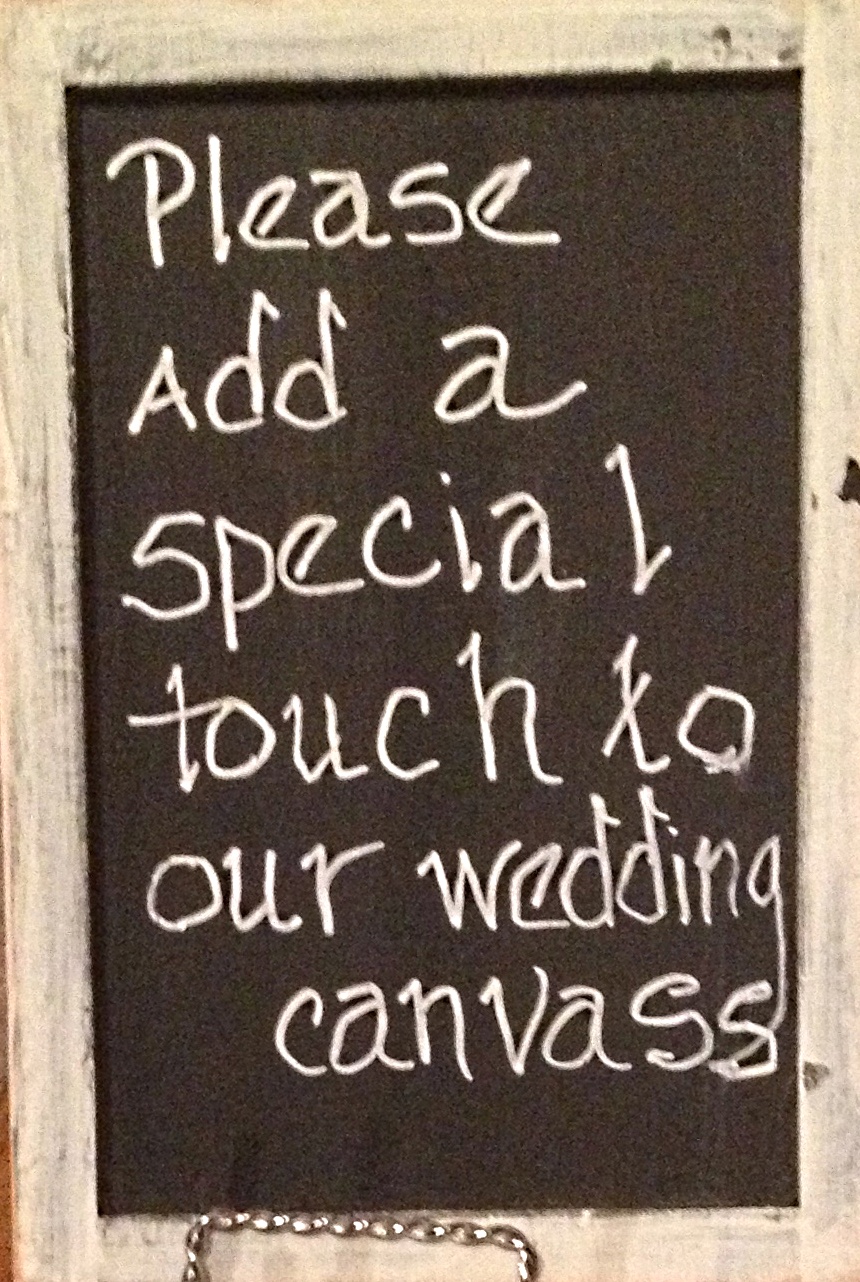 Please
Add a
special
touch to
our wedding
canvass